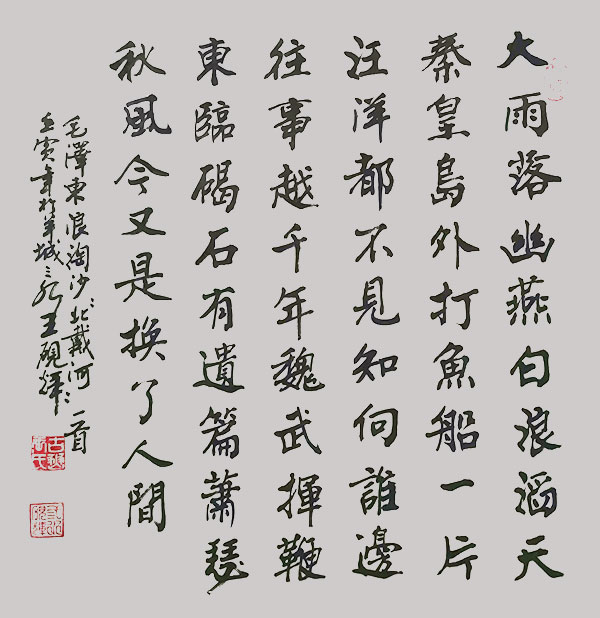 大雨落幽燕白浪滔天
秦皇島外打魚船一片
汪洋都不見知向誰邊
往事越千年魏武揮鞭
東臨碣石有遺篇蕭瑟
秋風今又是換了人間
毛澤東浪淘沙北戴河一首
壬寅年於羊城王硯輝